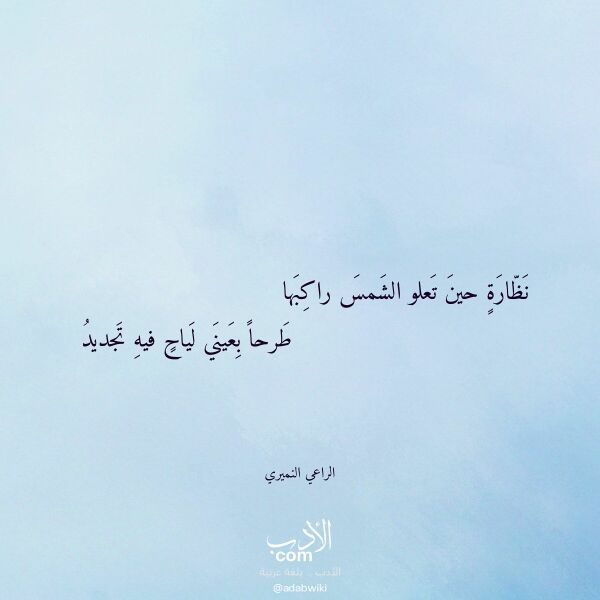 نَظّارَةٍ حينَ تَعلو الشَمسَ راكِبَها
طَرحاً بِعَينَي لَياحٍ فيهِ تَجديدُ
الراعي النميري
الأدب
com
الأدب .. بلغة عربية
@adabwiki